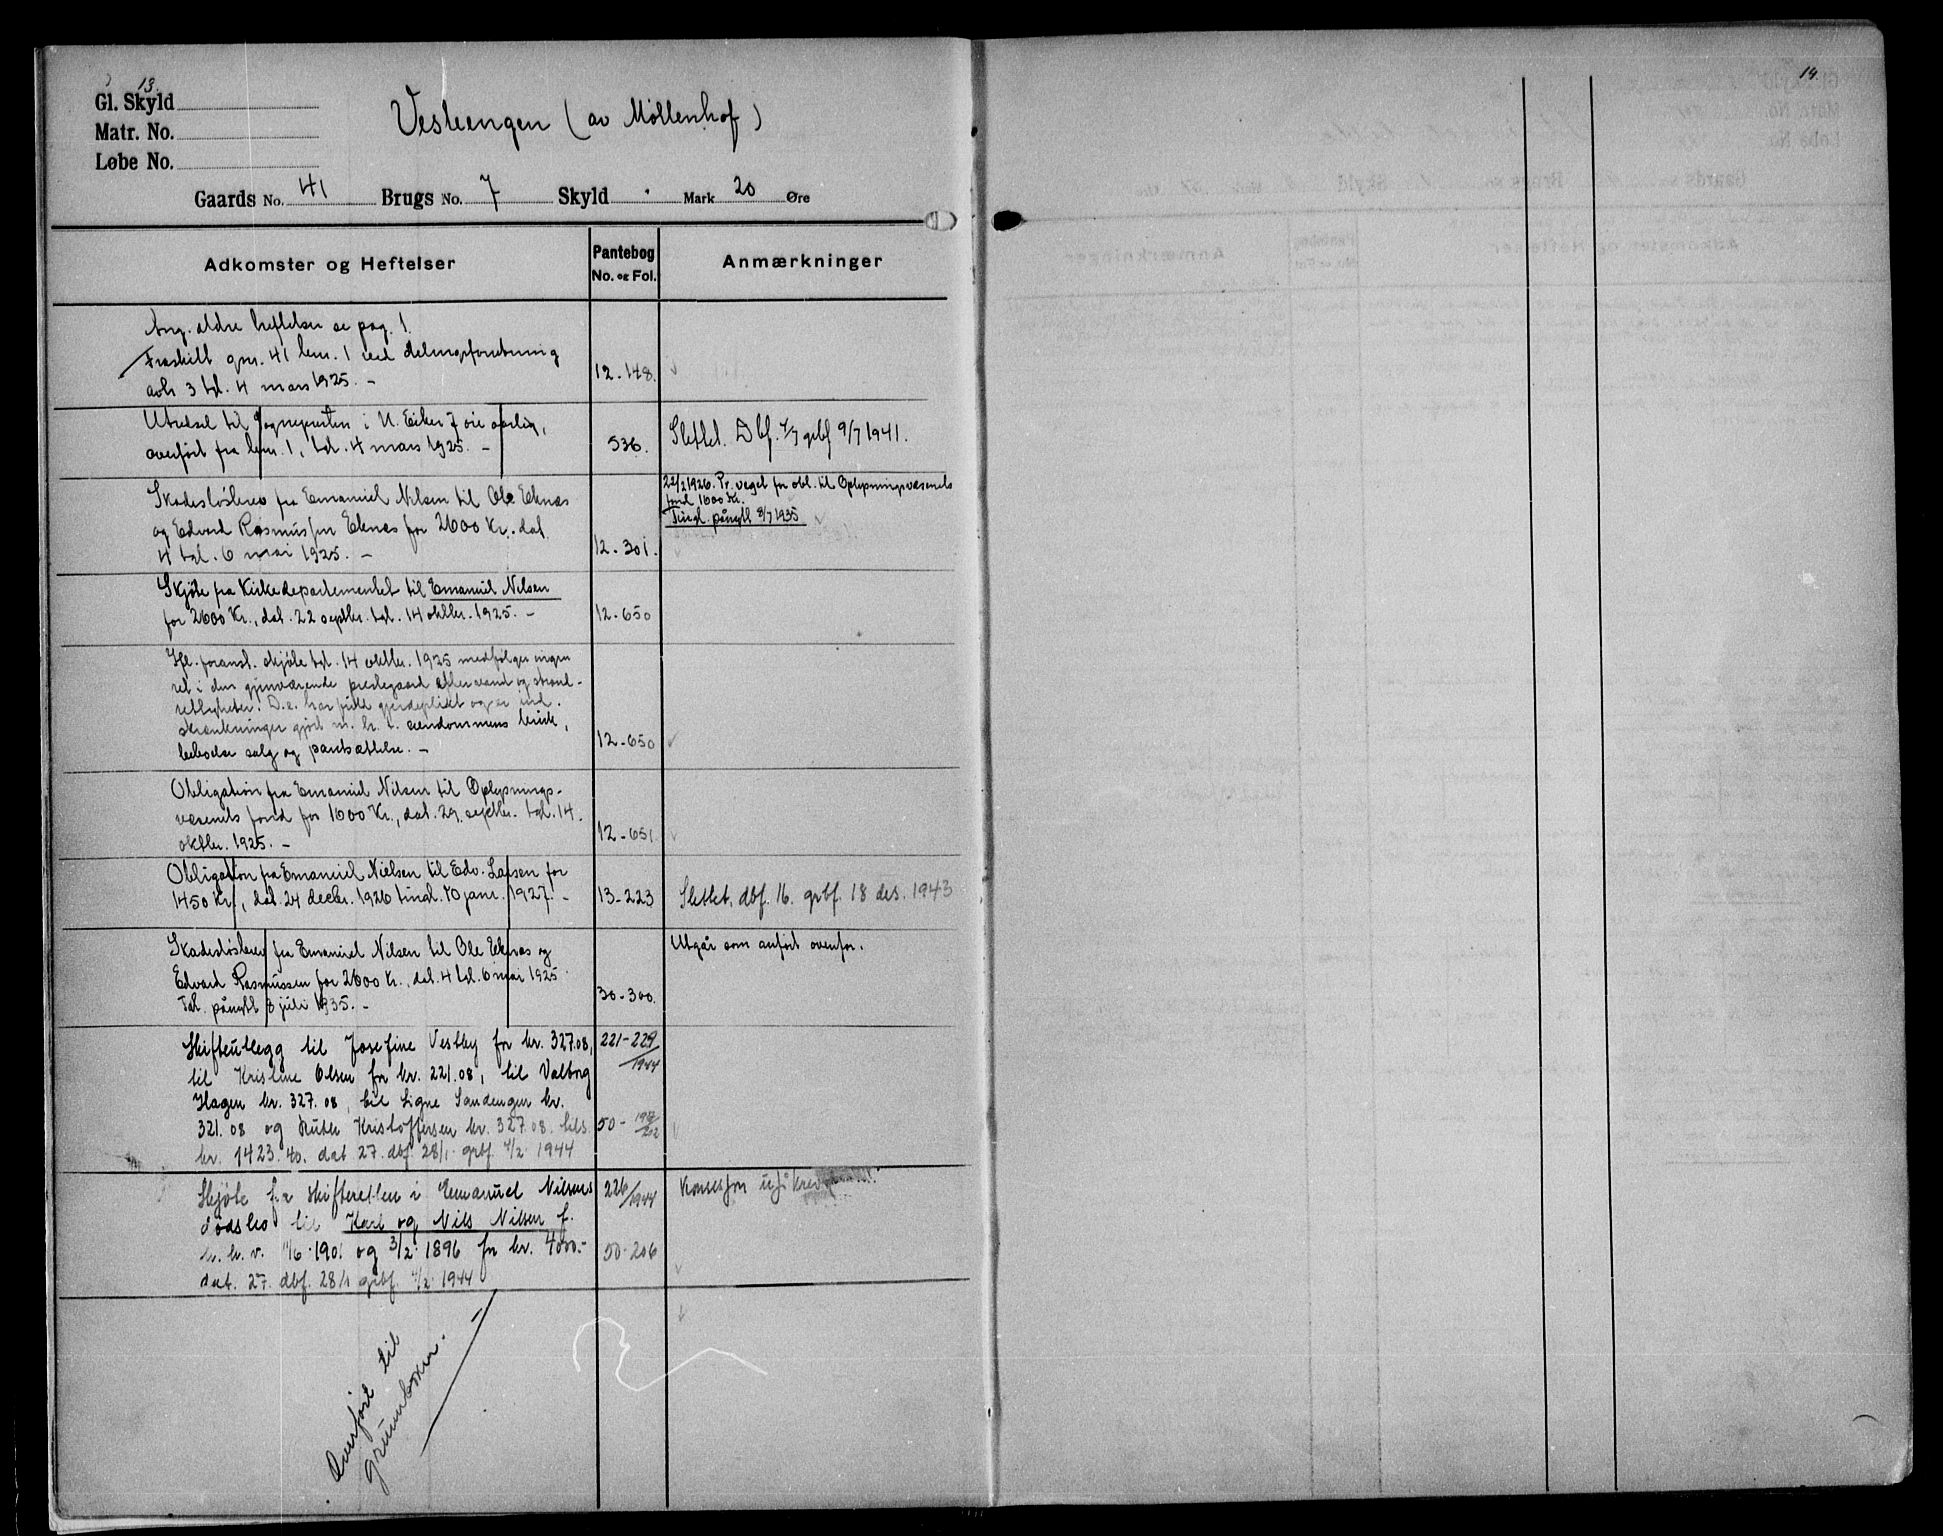 13.
Gl. Skyld
Matr. No.
Løbe No.
Vestengen (av Möllenhof)
Gaards No. 41 Brugs No. 7 Skyld . Mark 20 Øre
Adkomster og Heftelser
Pantebog
No. og Fol.
Anmærkninger
Ang. ældre heftelser se pag. 1.
Fraskilt gnr. 41 brn. 1 ved delingsforretning
avh 3 tgl. 4 mars 1925. -
12-148.
Utredsel til sognepresten i N. Eiker 7 øre aarlig,
overført fra brn. 1, tgl. 4 mars 1925. -
536.
Slettet. Dbf. 7/7 grbf 9/7 1941.
Skadesløsbrev fra Emanuel Nilsen til Ole Eknæs
og Edvard Rasmussen Eknæs for 2600 Kr. dat.
4 tgl. 6 mai 1925. -
12-301.
22/2 1926. Pr. veget for obl. til Oplysningsvæsenets
fond 1600 Kr.
Tingl. pånytt 8/7 1935
Skjøte fra Kirkedepartementet til Emanuel Nilsen
for 2600 Kr., dat. 22 septbr. tgl. 14 oktbr. 1925. -
12-650
Ifl. foranst. skjøte tgl. 14 oktbr. 1925 medfølger ingen
ret i den gjenværende prestegaard efter vand og strand-
rettigheter. D.e. har fuld gjerdeplikt og er ind-
skrænkninger gjort m. h. t. eiendommens bruk,
bebodse salg og pantsættelse. -
12-650
Obligation fra Emanuel Nilsen til Oplysnings-
væsenets fond for 1600 Kr., dat. 29. septbr. tgl. 14.
oktbr. 1925. -
12-651.
Obligation fra Emanuel Nielsen til Edv. Larsen for
1450 Kr., dat. 24 decbr. 1926 tingl. 10 janr. 1927. -
13-223
Slettet, dbf. 16. grbf. 18 des. 1943
Skadesløsbrev fra Emanuel Nilsen til Ole Eknæs og
Edvard Rasmussen for 2600 Kr., dat. 4 tgl. 6 mai 1925
Tgl. pånytt 8 juli 1935. -
30-300.
Utgår som anført ovenfor.
Skifteutlegg til Josefine Vestby for kr. 327.08,
til Kristine Olsen for kr. 221.08, til Valborg
Hagen kr. 327.08, til Signe Sandengen kr.
321.08 og Ruth Kristoffersen kr. 327.08 tils.
kr. 1423.40. dat 27. dbf. 28/1 grbf. 4/2 1944
221-229/1944
50-197/202
Skjøte fra skifteretten i Emanuel Nilsens
dødsbo til Karl og Nils Nilsen f.
h. h. v. 11/6 1901 og 3/2 1896 for kr. 4000.-
dat. 27. dbf. 28/1 grbf. 4/2 1944
226/1944
50-206
Konsesjon
Overført til
grunnboken.
14.